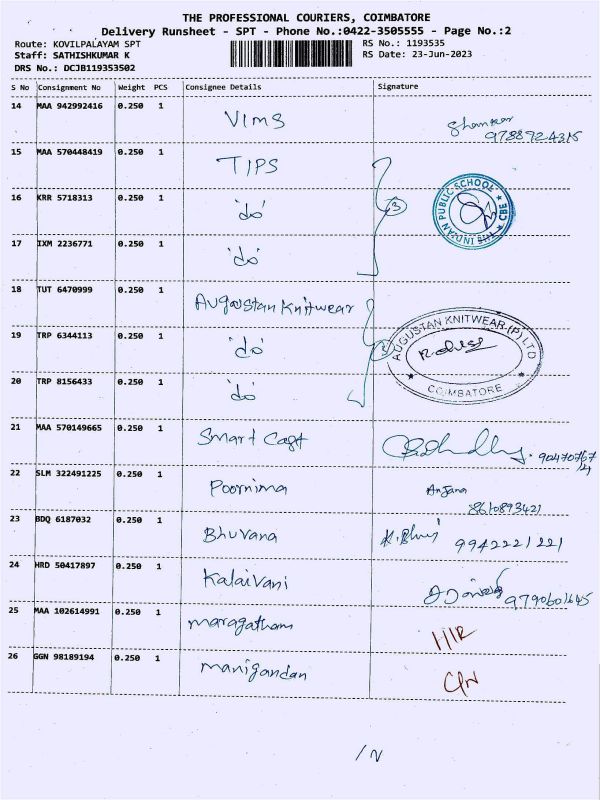 THE PROFESSIONAL COURIERS, COIMBATORE
Delivery Runsheet - SPT - Phone No.:0422-3505555 - Page No.:2
Route: KOVILPALAYAM SPT
Staff: SATHISHKUMAR K
DRS No.: DCJB119353502
RS No.: 1193535
RS Date: 23-Jun-2023
S No Consignment No Weight PCS Consignee Details Signature
14 MAA 942992416 0.250 1 VIMS Shankar
9788724315
15 MAA 570448419 0.250 1 TIPS
16 KRR 5718313 0.250 1 'do' 3
THE INDIAN PUBLIC SCHOOL CBE
17 IXM 2236771 0.250 1 'do'
18 TUT 6470999 0.250 1 Augustan Knitwear
19 TRP 6344113 0.250 1 'do' 3
AUGUSTAN KNITWEAR (P) LTD
COIMBATORE
20 TRP 8156433 0.250 1 'do'
21 MAA 570149665 0.250 1 Smart Cast
22 SLM 322491225 0.250 1 Poornima Anjana
8610893421
23 BDQ 6187032 0.250 1 Bhuvana 9942221221
24 HRD 50417897 0.250 1 Kalaivani 9790601645
25 MAA 102614991 0.250 1 maragatham
26 GGN 98189194 0.250 1 manigandan